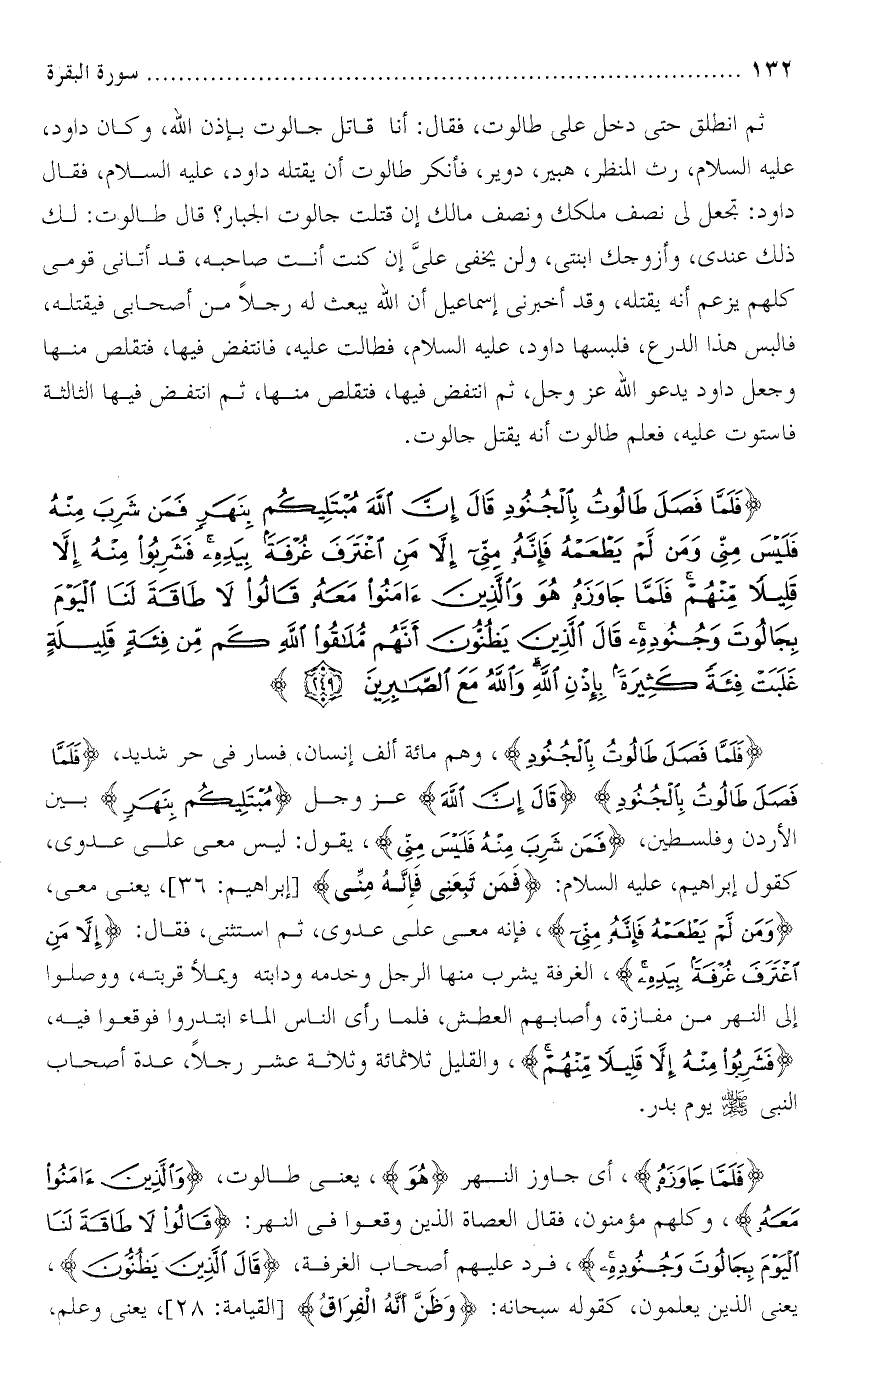 ١٣٢ ........................................................................... سورة البقرة
ثم انطلق حتى دخل على طالوت، فقال: أنا قاتل جالوت بإذن الله، وكان داود،
عليه السلام، رث المنظر، هبير، دوير، فأنكر طالوت أن يقتله داود، عليه السلام، فقال
داود: تجعل لى نصف ملكك ونصف مالك إن قتلت جالوت الجبار؟ قال طالوت: لك
ذلك عندى، وأزوجك ابنتى، ولن يخفى علىَّ إن كنت أنت صاحبه، قد أتانى قومى
كلهم يزعم أنه يقتله، وقد أخبرنى إسماعيل أن الله يبعث له رجلاً من أصحابى فيقتله،
فالبس هذا الدرع، فلبسها داود، عليه السلام، فطالت عليه، فانتفض فيها، فتقلص منها
وجعل داود يدعو الله عز وجل، ثم انتفض فيها، فتقلص منها، ثم انتفض فيها الثالثة
فاستوت عليه، فعلم طالوت أنه يقتل جالوت.
﴿فَلَمَّا فَصَلَ طَالُوتُ بِٱلْجُنُودِ قَالَ إِنَّ ٱللَّهَ مُبْتَلِيكُم بِنَهَرٍ فَمَن شَرِبَ مِنْهُ
فَلَيْسَ مِنِّى وَمَن لَّمْ يَطْعَمْهُ فَإِنَّهُۥ مِنِّىٓ إِلَّا مَنِ ٱغْتَرَفَ غُرْفَةًۢ بِيَدِهِۦۚ فَشَرِبُوا۟ مِنْهُ إِلَّا
قَلِيلًا مِّنْهُمْۚ فَلَمَّا جَاوَزَهُۥ هُوَ وَٱلَّذِينَ ءَامَنُوا۟ مَعَهُۥ قَالُوا۟ لَا طَاقَةَ لَنَا ٱلْيَوْمَ
بِجَالُوتَ وَجُنُودِهِۦۚ قَالَ ٱلَّذِينَ يَظُنُّونَ أَنَّهُم مُّلَٰقُوا۟ ٱللَّهِ كَم مِّن فِئَةٍ قَلِيلَةٍ
غَلَبَتْ فِئَةً كَثِيرَةًۢ بِإِذْنِ ٱللَّهِۗ وَٱللَّهُ مَعَ ٱلصَّٰبِرِينَ ٢٤٩﴾
﴿فَلَمَّا فَصَلَ طَالُوتُ بِٱلْجُنُودِ﴾، وهم مائة ألف إنسان، فسار فى حر شديد، ﴿فَلَمَّا
فَصَلَ طَالُوتُ بِٱلْجُنُودِ﴾ ﴿قَالَ إِنَّ ٱللَّهَ﴾ عز وجل ﴿مُبْتَلِيكُم بِنَهَرٍ﴾ بين
الأردن وفلسطين، ﴿فَمَن شَرِبَ مِنْهُ فَلَيْسَ مِنِّى﴾، يقول: ليس معى على عدوى،
كقول إبراهيم، عليه السلام: ﴿فَمَن تَبِعَنِى فَإِنَّهُ مِنِّى﴾ [إبراهيم: ٣٦]، يعنى معى،
﴿وَمَن لَّمْ يَطْعَمْهُ فَإِنَّهُۥ مِنِّىٓ﴾، فإنه معى على عدوى، ثم استثنى، فقال: ﴿إِلَّا مَنِ
ٱغْتَرَفَ غُرْفَةًۢ بِيَدِهِۦۚ﴾، الغرفة يشرب منها الرجل وخدمه ودابته ويملأ قربته، ووصلوا
إلى النهر من مفازة، وأصابهم العطش، فلما رأى الناس الماء ابتدروا فوقعوا فيه،
﴿فَشَرِبُوا۟ مِنْهُ إِلَّا قَلِيلًا مِّنْهُمْۚ﴾، والقليل ثلاثمائة وثلاثة عشر رجلاً، عدة أصحاب
النبى ﷺ يوم بدر.
﴿فَلَمَّا جَاوَزَهُۥ﴾، أى جاوز النهر ﴿هُوَ﴾، يعنى طالوت، ﴿وَٱلَّذِينَ ءَامَنُوا۟
مَعَهُۥ﴾، وكلهم مؤمنون، فقال العصاة الذين وقعوا فى النهر: ﴿قَالُوا۟ لَا طَاقَةَ لَنَا
ٱلْيَوْمَ بِجَالُوتَ وَجُنُودِهِۦۚ﴾، فرد عليهم أصحاب الغرفة، ﴿قَالَ ٱلَّذِينَ يَظُنُّونَ﴾،
يعنى الذين يعلمون، كقوله سبحانه: ﴿وَظَنَّ أَنَّهُ الْفِرَاقُ﴾ [القيامة: ٢٨]، يعنى وعلم،